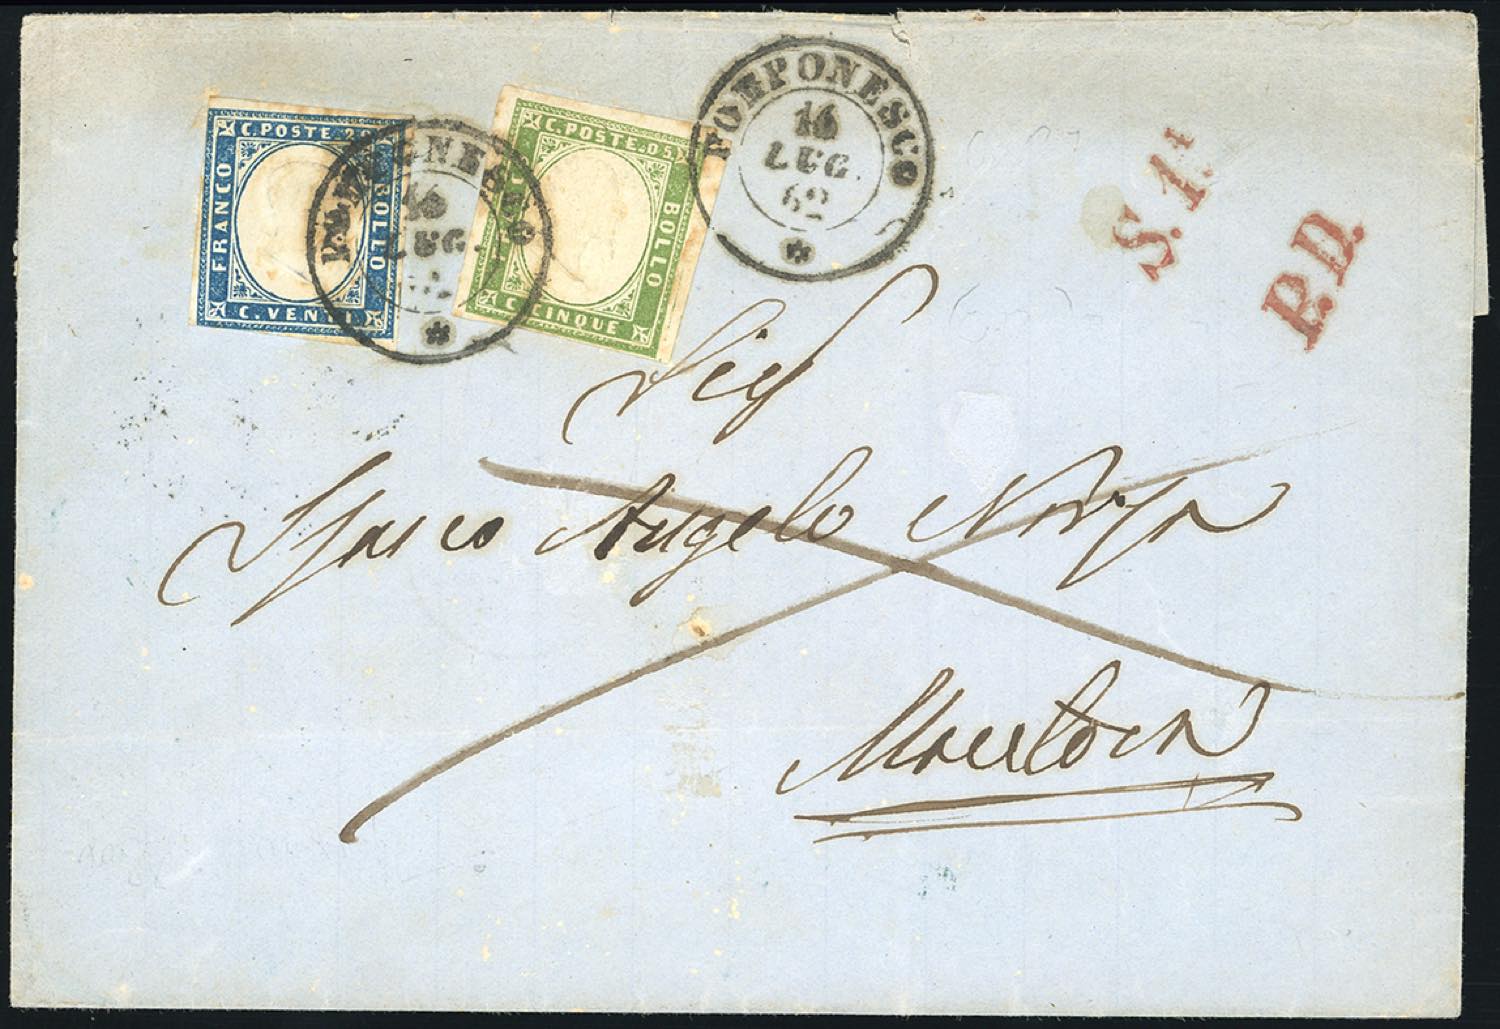 C. POSTE 20
FRANCO
BOLLO
C. VENTI
C. POSTE. 05
BOLLO
C. CINQUE
POMPONESCO
16
LUG.
POMPONESCO
16
LUG.
62
S. 1ª
P.D.
Sig
Angelo Norsa
Mantova